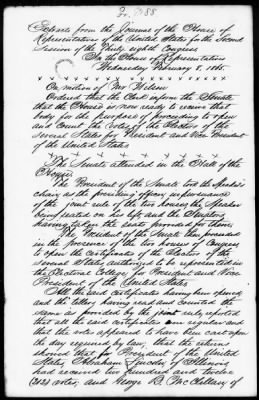 Extracts from the Journal of the House of
Representatives of the United States for the Second
Session of the Thirty eighth Congress
In the House of Representatives
Wednesday February 8, 1865.
x x x x x x x x x x x x x
On motion of Mr Wilson
Ordered that the Clerk inform the Senate
that the House is now ready to receive that
body for the purpose of proceeding to open
and count the votes of the Electors of the
several States for President and Vice President
of the United States
x x x x x x x x x x
The Senate attended in the Hall of the
House.
The President of the Senate took the Speaker's
chair as the presiding officer in pursuance
of the joint rule of the two houses, the Speaker
being seated on his left, and the Senators
having taken the seats provided for them,
The President of the Senate then proceeded
in the presence of the two houses of Congress
to open the certificates of the Electors of the
several States authorized to be represented in
the Electoral College for President and Vice
President of the United States.
All the said certificates having been opened
and the tellers having read and counted the
same as provided by the joint rule, reported
that all the said certificates were regular and
that the votes appeared to have been cast upon
the day required by law, that the returns
showed that for President of the United
States, Abraham Lincoln, of Illinois
had received two hundred and twelve
(212) votes, and George B. McClellan of